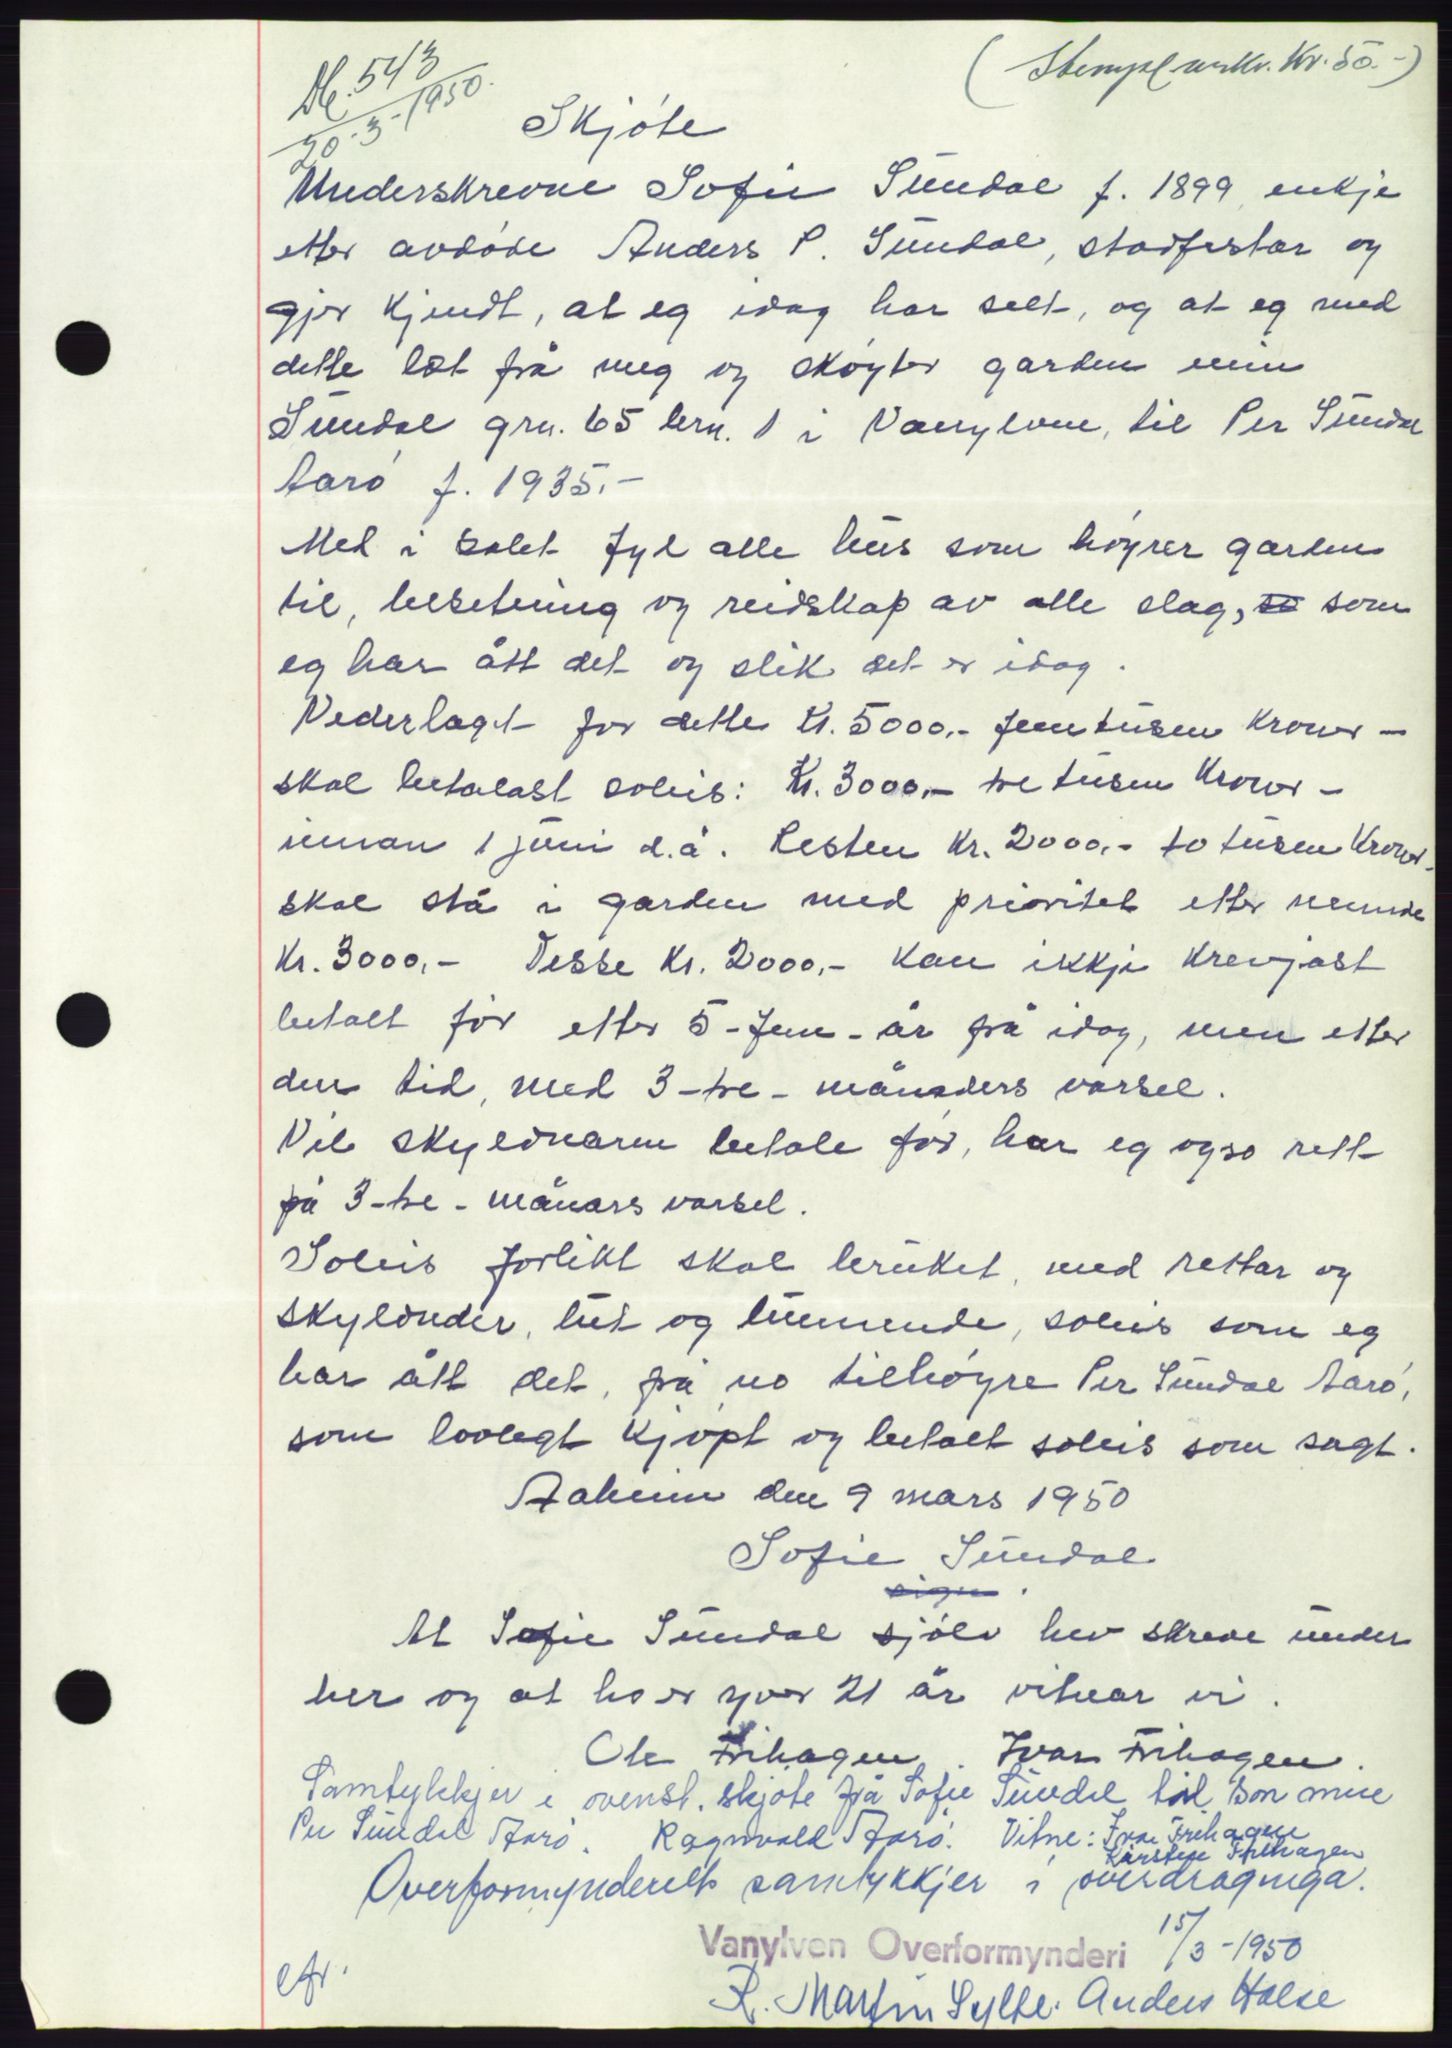 Db. 543
20-3-1950.
(Stempl. merkr. Kr. 50.-)
Skjóte
Underskrevne Sofie Sündal f. 1899, enkje
etter avdóde Anders P. Sündal, stadfestar og
gjer kjendt, at eg idag har selt, og at eg med
dette læt frå meg og skóyter garden min
Sündal grn. 65 brn. 1 i Vanylven, til Per Sündal
Aaró f. 1935.-
Med i salet fyl alle hüs som hóyrer garden
til, besetning og reidskap av alle slag, so som
eg har ått det og slik det er idag.
Vederlaget for dette Kr. 5000.- femtüsen kroner -
skal betalast soleis: Kr. 3000.- tre tüsen kroner -
innan 1 jüni d.å. Resten Kr. 2000.- to tüsen kroner -
skal stå i garden med prioritet etter nemnde
Kr. 3000,- Desse Kr. 2000,- kan ikkje krevjast
betalt fór etter 5 - fem - år frå idag, men etter
den tid, med 3 - tre - månaders varsel.
Vil skyldnaren betale fór, har eg ogso rett
på 3 - tre - månars varsel.
Soleis forlikt skal brüket, med rettar og
skyldnder, lüt og lünnende, soleis som eg
har ått det, frå no tilhóyre Per Sündal Aaró,
som lovlegt kjópt og betalt soleis som sagt.
Aaheim den 9 mars 1950
Sofie Sündal
sign.
At Sofie Sündal sjólv hev skreve ünder
her og at ho er yver 21 år vitnar vi.
Ole Frihagen. Ivar Frihagen.
Samtykkjer i ovenst. skjóte frå Sofie Sündal til son min
Per Sündal Aaró. Ragnvald Aaró. Vitne: Ivar Frihagen
Karsten Frihagen
Overformynderiet samtykkjer i overdraginga.
Vanylven Overformynderi 15/3-1950
R. Martin Sylte. Anders Halse